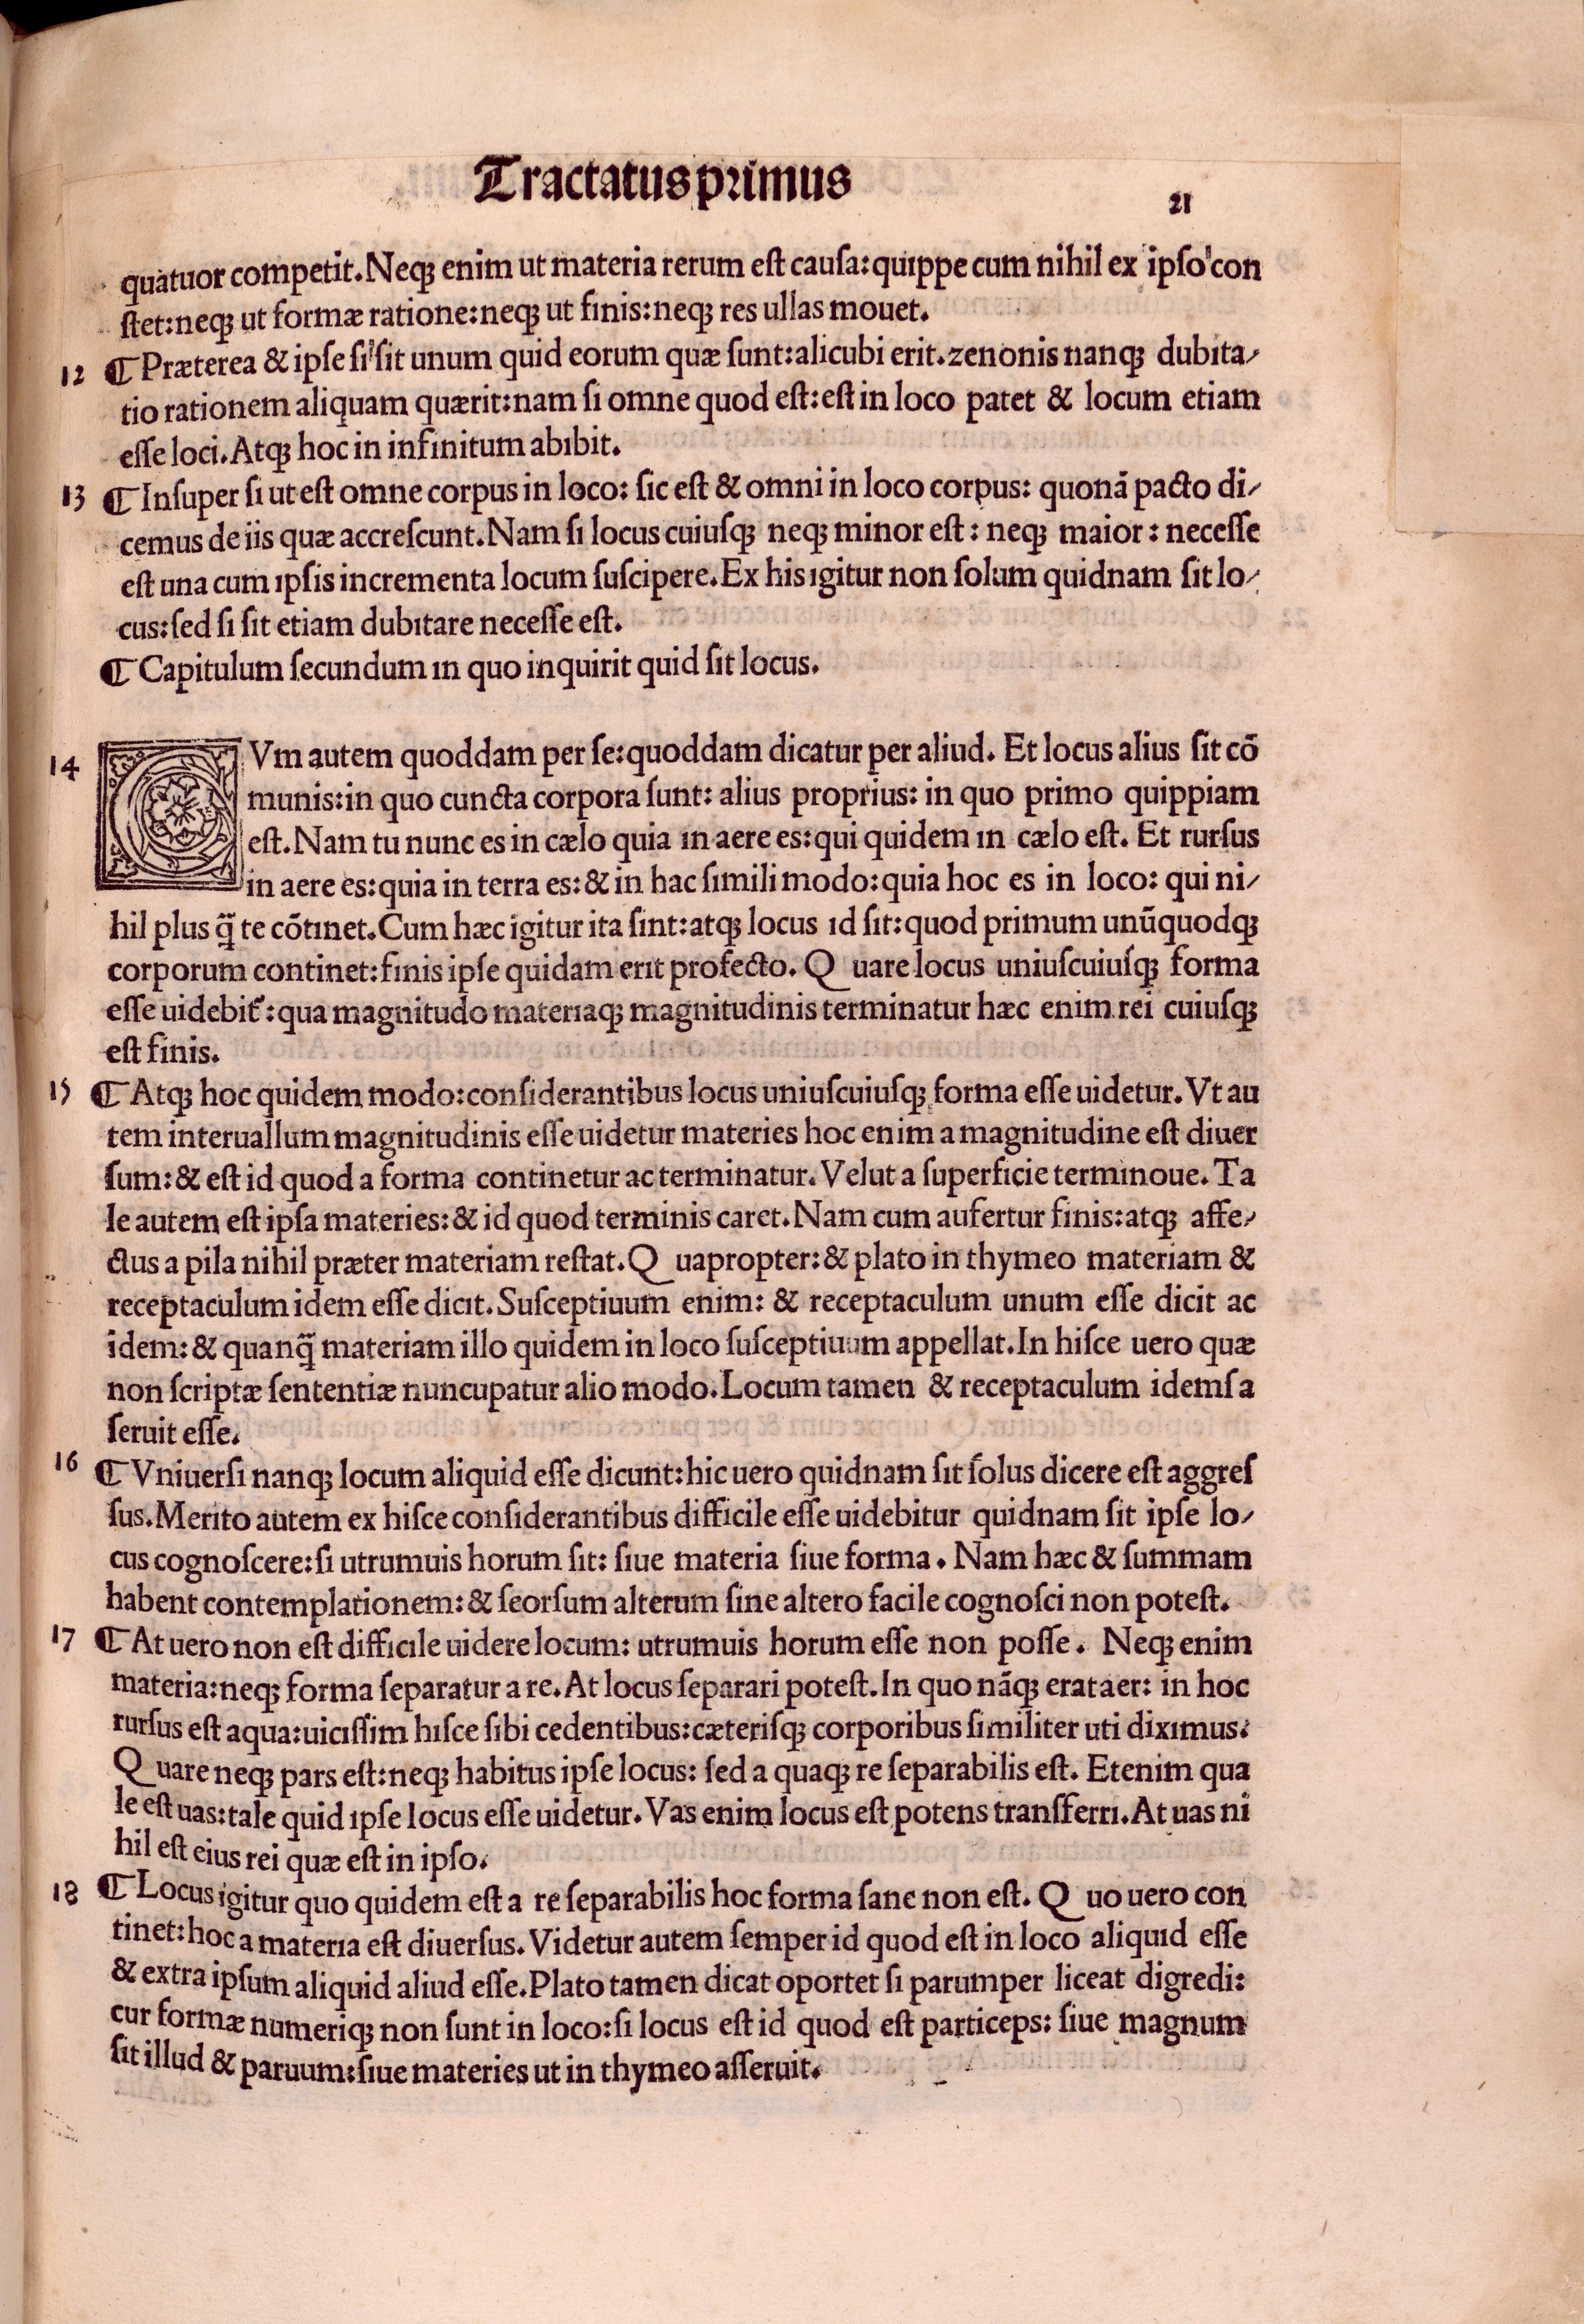 Tractatus primus
21
quatuor competit. Neqꝫ enim ut materia rerum est causa: quippe cum nihil ex ipso con
stet: neqꝫ ut formæ ratione: neqꝫ ut finis: neqꝫ res ullas mouet.
12 ¶ Præterea & ipse si sit unum quid eorum quæ sunt: alicubi erit. zenonis nanqꝫ dubita/
tio rationem aliquam quærit: nam si omne quod est: est in loco patet & locum etiam
esse loci. Atqꝫ hoc in infinitum abibit.
13 ¶ Insuper si ut est omne corpus in loco: sic est & omni in loco corpus: quonã pacto di/
cemus de iis quæ accrescunt. Nam si locus cuiusqꝫ neqꝫ minor est: neqꝫ maior: necesse
est una cum ipsis incrementa locum suscipere. Ex his igitur non solum quidnam sit lo/
cus: sed si sit etiam dubitare necesse est.
¶ Capitulum secundum in quo inquirit quid sit locus.
14 CVm autem quoddam per se: quoddam dicatur per aliud. Et locus alius sit cõ
munis: in quo cuncta corpora sunt: alius proprius: in quo primo quippiam
est. Nam tu nunc es in cælo quia in aere es: qui quidem in cælo est. Et rursus
in aere es: quia in terra es: & in hac simili modo: quia hoc es in loco: qui ni/
hil plus q̃ te cõtinet. Cum hæc igitur ita sint: atqꝫ locus id sit: quod primum unũquodqꝫ
corporum continet: finis ipse quidam erit profecto. Quare locus uniuscuiusqꝫ forma
esse uidebit̃: qua magnitudo materiaqꝫ magnitudinis terminatur hæc enim rei cuiusqꝫ
est finis.
15 ¶ Atqꝫ hoc quidem modo: considerantibus locus uniuscuiusqꝫ forma esse uidetur. Vt au
tem interuallum magnitudinis esse uidetur materies hoc enim a magnitudine est diuer
sum: & est id quod a forma continetur ac terminatur. Velut a superficie terminoue. Ta
le autem est ipsa materies: & id quod terminis caret. Nam cum aufertur finis: atqꝫ affe/
ctus a pila nihil præter materiam restat. Quapropter: & plato in thymeo materiam &
receptaculum idem esse dicit. Susceptiuum enim: & receptaculum unum esse dicit ac
idem: & quanq̃ materiam illo quidem in loco susceptiuum appellat. In hisce uero quæ
non scriptæ sententiæ nuncupatur alio modo. Locum tamen & receptaculum idem sa
seruit esse.
16 ¶ Vniuersi nanqꝫ locum aliquid esse dicunt: hic uero quidnam sit solus dicere est aggres
sus. Merito autem ex hisce considerantibus difficile esse uidebitur quidnam sit ipse lo/
cus cognoscere: si utrumuis horum sit: siue materia siue forma. Nam hæc & summam
habent contemplationem: & seorsum alterum sine altero facile cognosci non potest.
17 ¶ At uero non est difficile uidere locum: utrumuis horum esse non posse. Neqꝫ enim
materia: neqꝫ forma separatur a re. At locus separari potest. In quo nãqꝫ erat aer: in hoc
rursus est aqua: uicissim hisce sibi cedentibus: cæterisqꝫ corporibus similiter uti diximus.
Quare neqꝫ pars est: neqꝫ habitus ipse locus: sed a quaqꝫ re separabilis est. Etenim qua
le est uas: tale quid ipse locus esse uidetur. Vas enim locus est potens transferri. At uas ni
hil est eius rei quæ est in ipso.
18 ¶ Locus igitur quo quidem est a re separabilis hoc forma sane non est. Quo uero con
tinet: hoc a materia est diuersus. Videtur autem semper id quod est in loco aliquid esse
& extra ipsum aliquid aliud esse. Plato tamen dicat oportet si parumper liceat digredi:
cur formæ numeriqꝫ non sunt in loco: si locus est id quod est particeps: siue magnum
sit illud & paruum: siue materies ut in thymeo asseruit.